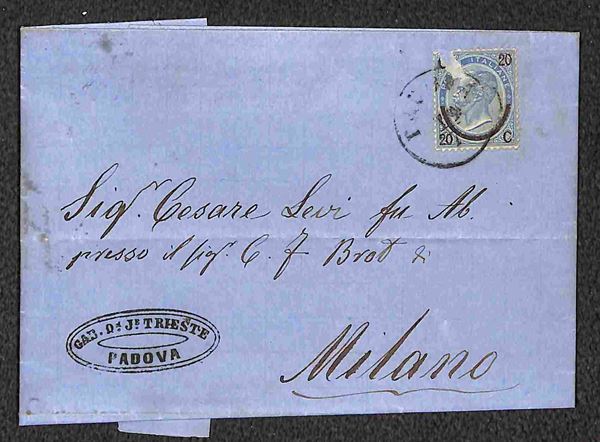 20
ITALIANE
20 C
Sig.r Cesare Levi fu Ab.
presso il Sig.r C. F. Brot &
Milano
GAB. D.i J.b TRIESTE
PADOVA